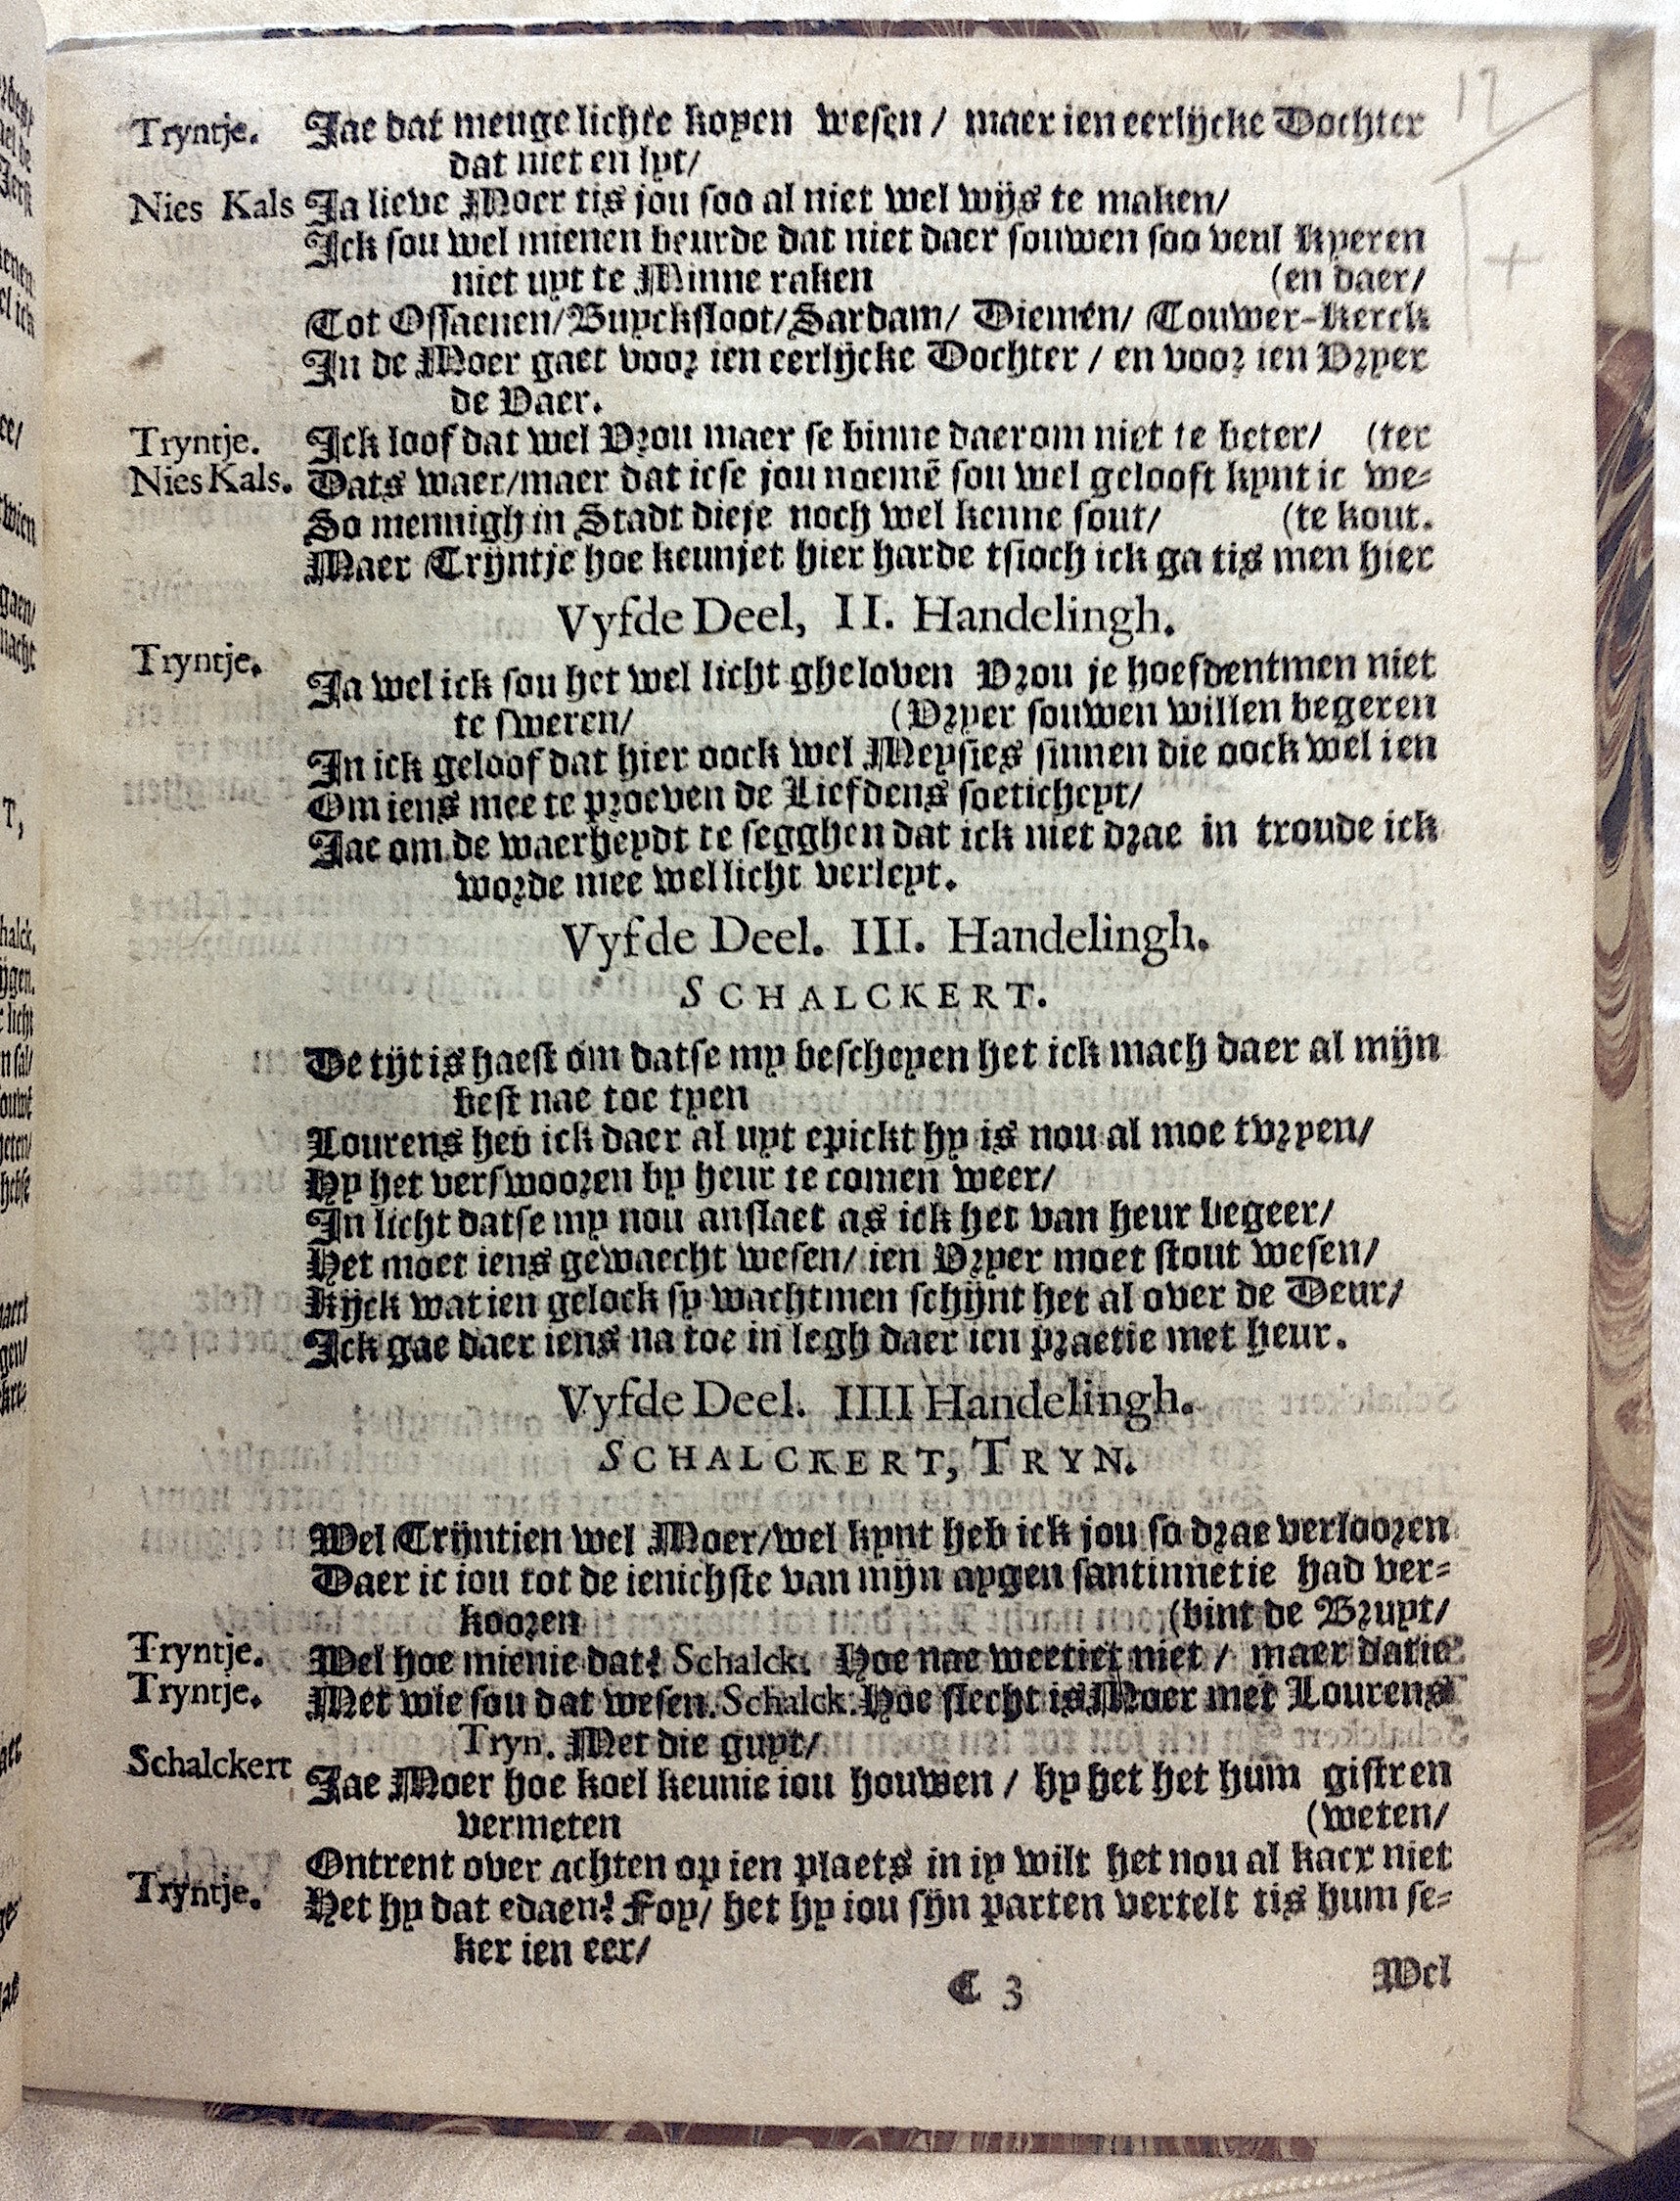 12
Tryntje. Jae dat menge lichte koyen wesen / maer ien eerlijcke Dochter
dat niet en lyt/
Nies Kals Ja lieve Moer tis jou soo al niet wel wijs te maken/
Ick sou wel mienen beurde dat niet daer souwen soo veul kyeren
niet uyt te Minne raken (en daer/
Tot Ossaenen/Buycksloot/Sardam/ Diemen/ Touwer-kerck
In de Moer gaet voor ien eerlijcke Dochter / en voor ien Vryer
de Vaer.
Tryntje. Ick loof dat wel Vrou maer se binne daerom niet te beter/ (ter
Nies Kals. Dats waer/maer dat icse jou noemē sou wel gelooft kynt ic we-
So mennigh in Stadt dieje noch wel kenne sout/ (te kout.
Maer Trijntje hoe keunjet hier harde tsioch ick ga tis men hier
Vyfde Deel, II. Handelingh.
Tryntje. Ja wel ick sou het wel licht gheloven Vrou je hoefdentmen niet
te sweren/ (Vryer souwen willen begeren
In ick geloof dat hier oock wel Meysies sinnen die oock wel ien
Om iens mee te proeven de Liefdens soeticheyt/
Jae om de waerheydt te segghen dat ick niet drae in troude ick
worde mee wel licht verleyt.
Vyfde Deel. III. Handelingh.
SCHALCKERT.
De tijt is haest om datse my bescheyen het ick mach daer al mijn
best nae toe tyen
Lourens heb ick daer al uyt epickt hy is nou al moe tvryen/
Hy het verswooren by heur te comen weer/
In licht datse my nou anslaet as ick het van heur begeer/
Het moet iens gewaecht wesen/ ien Vryer moet stout wesen/
Kijck wat ien gelock sy wachtmen schijnt het al over de Deur/
Ick gae daer iens na toe in legh daer ien praetie met heur.
Vyfde Deel. IIII Handelingh.
SCHALCKERT, TRYN.
Wel Trijntien wel Moer/wel kynt heb ick jou so drae verlooren
Daer ic iou tot de ienichste van mijn aygen santinnetie had ver-
kooren (bint de Bruyt/
Tryntje. Wel hoe mienie dat? Schalck. Hoe nae weetiet niet / maer datie
Tryntje. Met wie sou dat wesen. Schalck. Hoe slecht is Moer met Lourens
Tryn. Met die guyt/
Schalckert Jae Moer hoe koel keunie iou houwen / hy het het hum gistren
vermeten (weten/
Ontrent over achten op ien plaets in iy wilt het nou al kaer niet
Tryntje. Het hy dat edaen? Foy/ het hy iou sijn parten vertelt tis hum se-
ker ien eer/
C 3 Wel